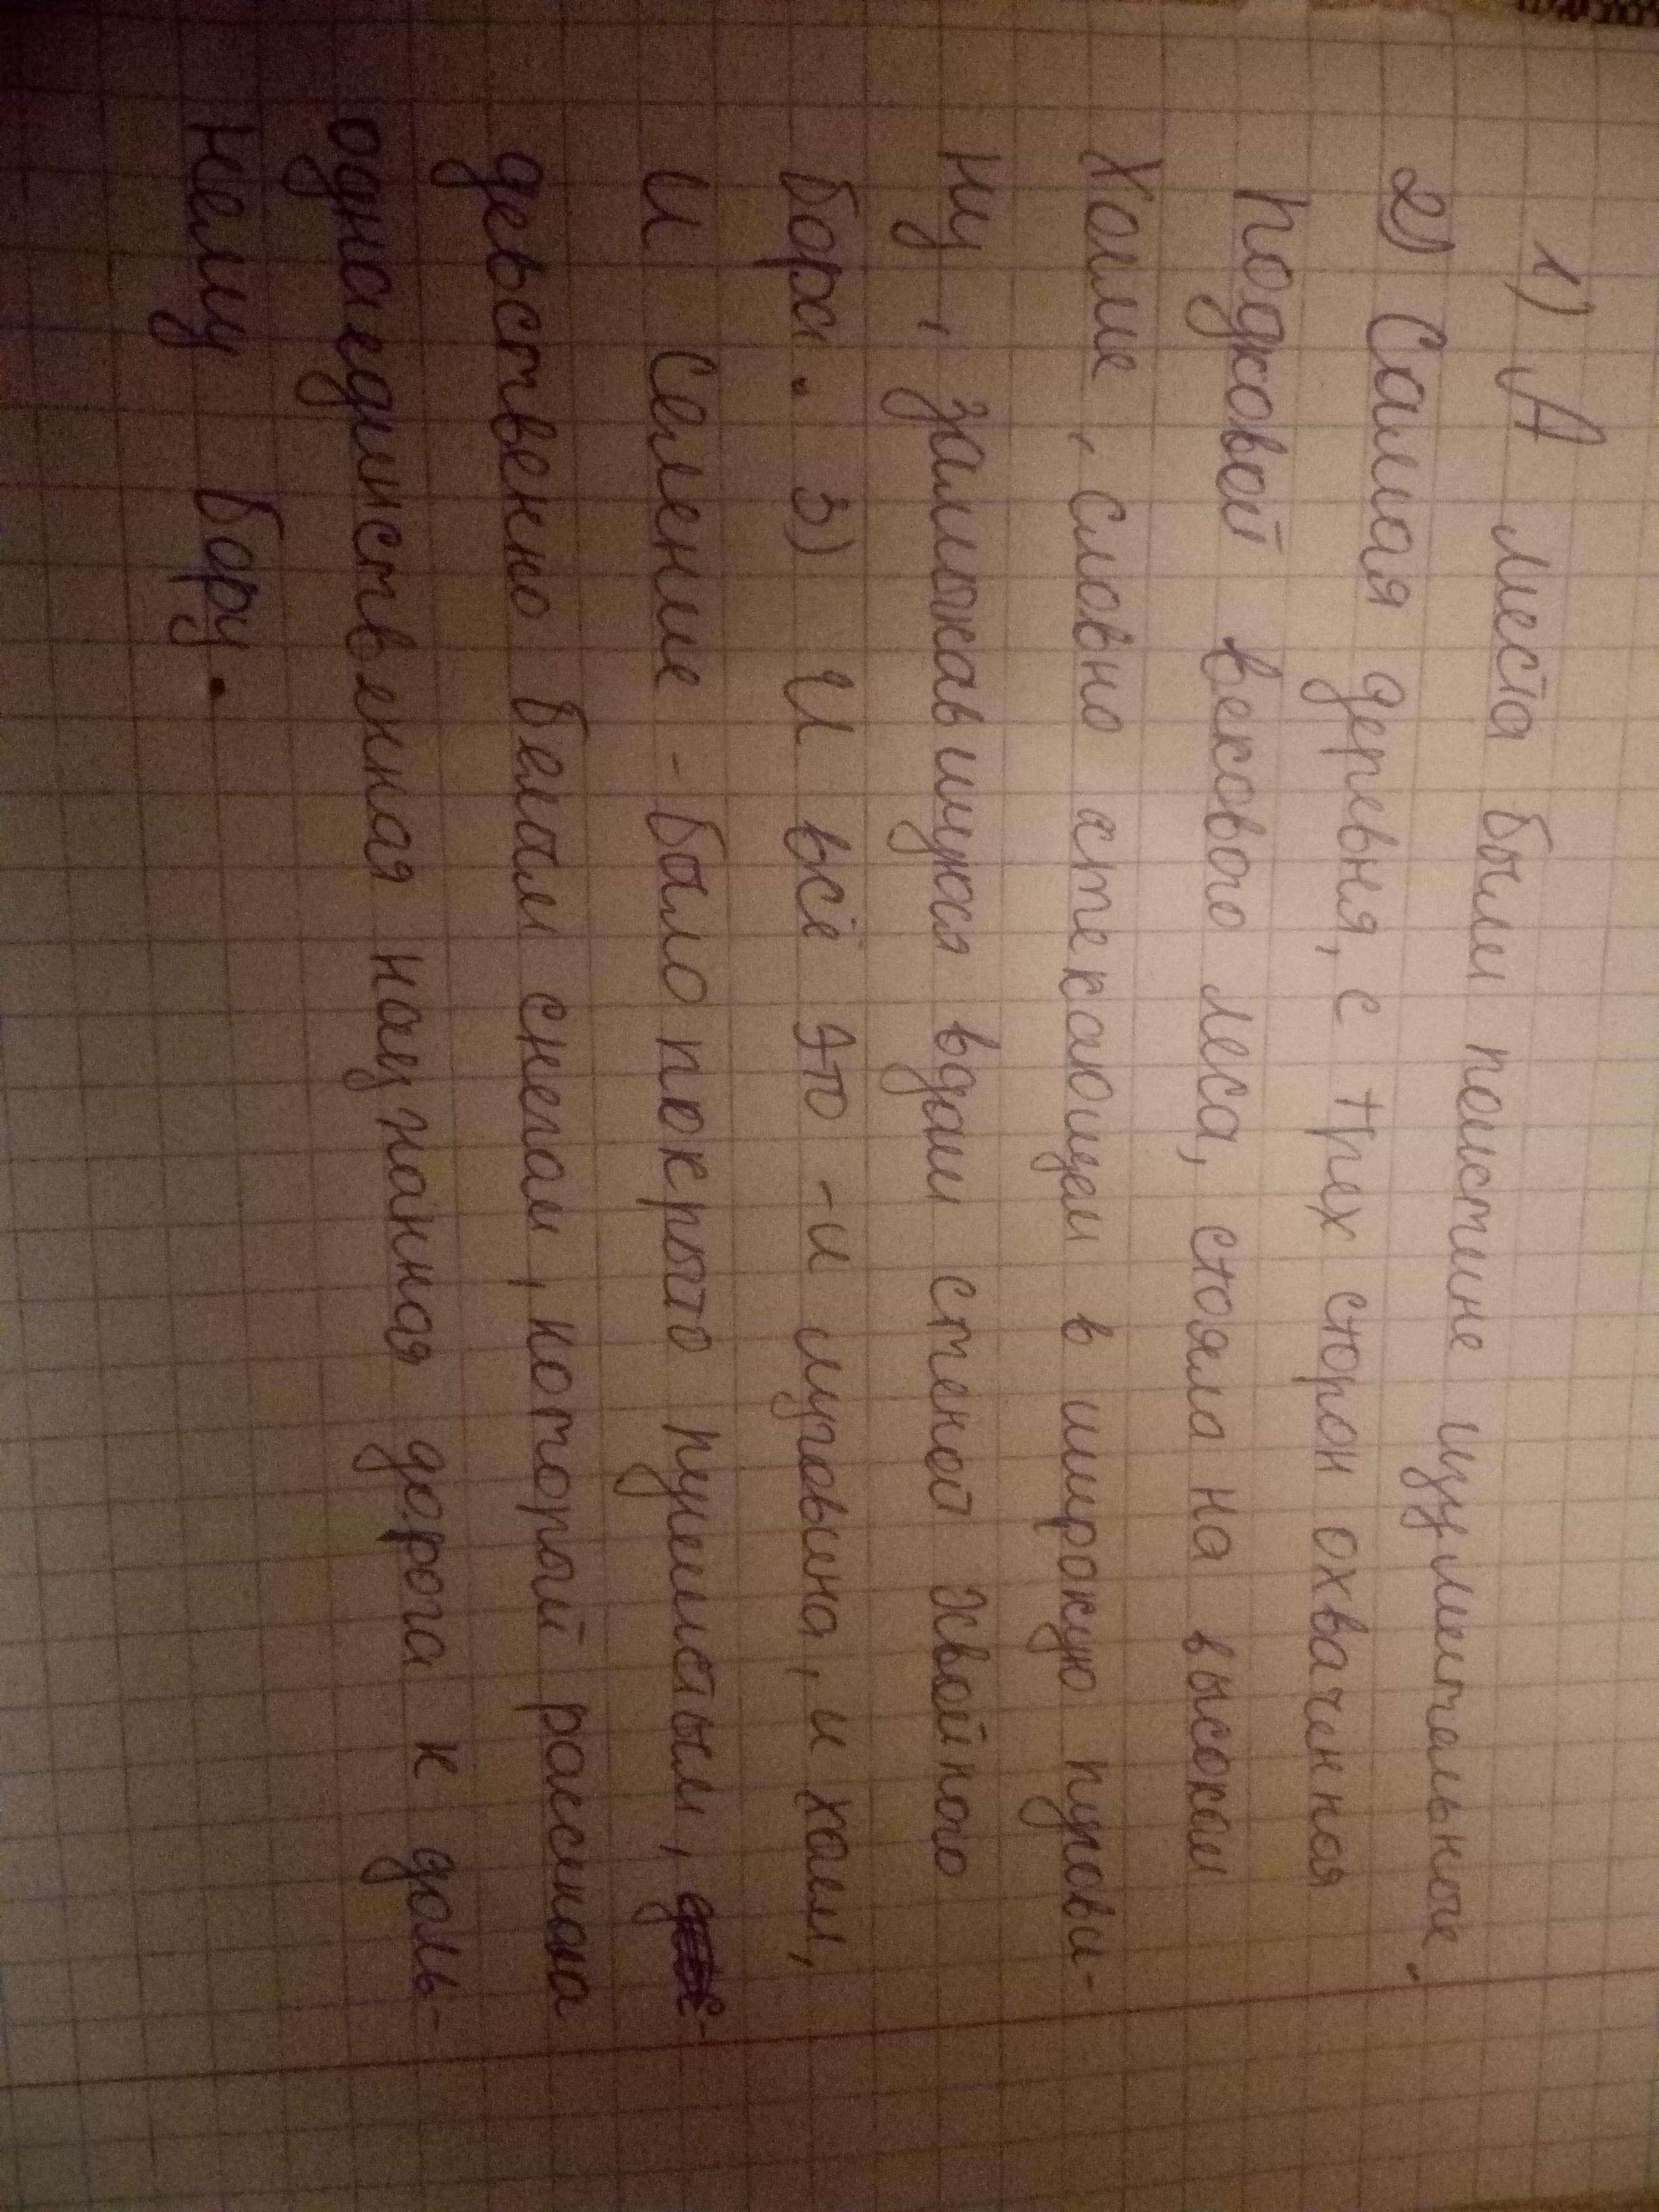 1) А места были поистине изумительные.
2) Самая деревня, с трех сторон охваченная
подковой векового леса, стояла на высоком
холме, словно стекающем в широкую лугови-
ну, замыкавшуюся вдали стеной хвойного
бора. 3) И всё это - и луговина, и холм,
и селение - было покрыто пушистым,
девственно белым снегом, который рассекла
одна единственная нацканная дорога к даль-
нему бору.